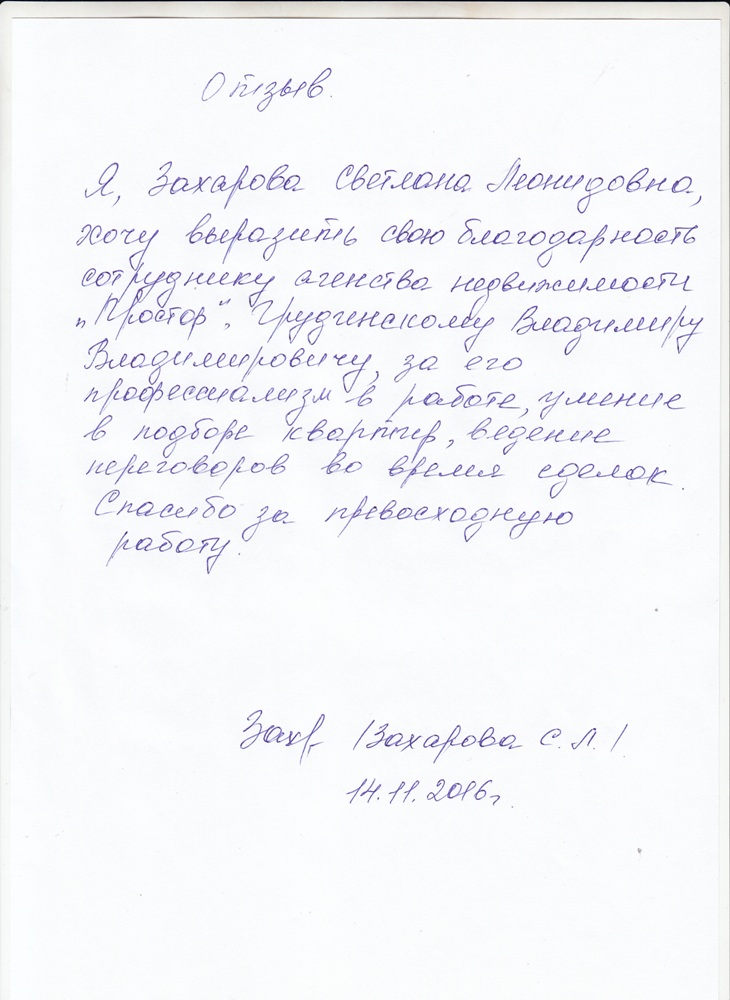 Отзыв.
Я, Захарова Светлана Леонидовна,
хочу выразить свою благодарность
сотруднику агенства недвижимости
„Простор", Грудинскому Владимиру
Владимировичу, за его
профессиализм в работе, умение
в подборе квартир, ведение
переговоров во время сделок.
Спасибо за превосходную
работу.
Захр /Захарова С.Л./
14.11.2016г.